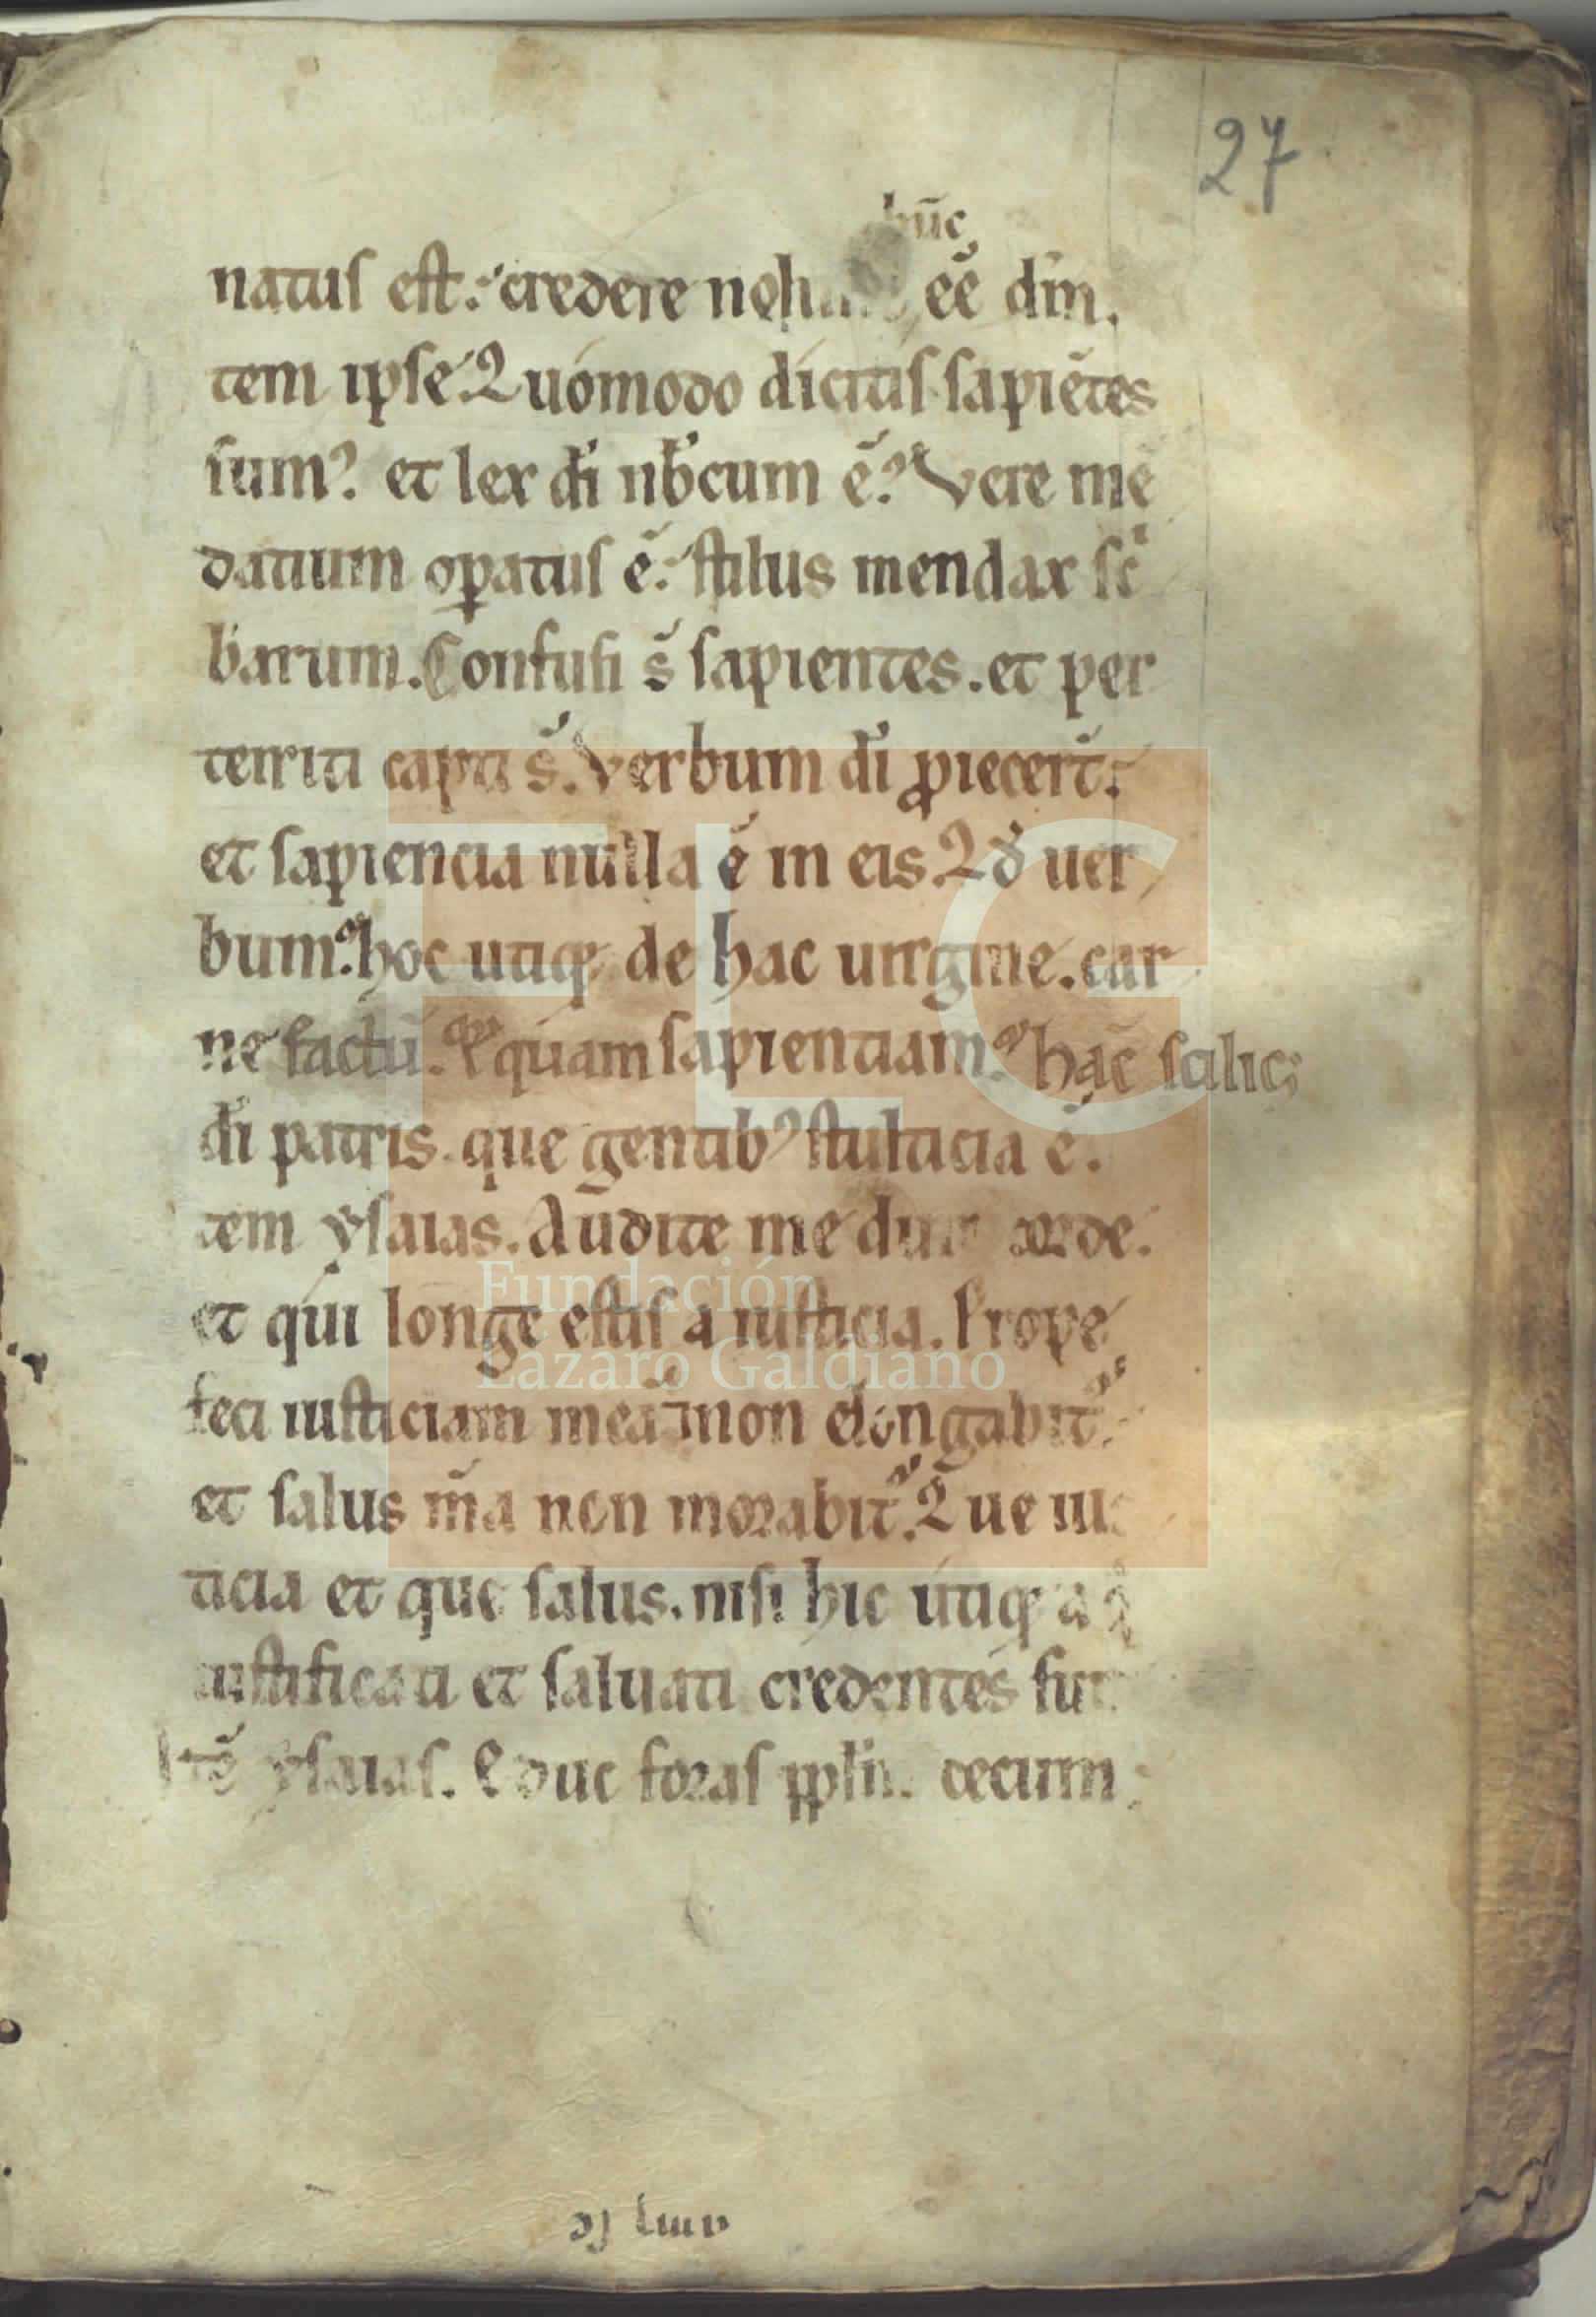 27
hūc
natus est. credere noluit eē dīm.
tem ipse. Quomodo dicitis sapiētes
sum? et lex dī nb̄cum ē? Vere mē
datium op̄atus ē. stilus mendax sc̄
barum. Confusi s̄ sapientes. et per
territi capti s̄. verbum dī proiecer̄t.
et sapiencia nulla ē in eis. Qd̄ uer
bum? hoc utiqꝫ de hac uirgine. car
ne factū. & quam sapientiam? hāc scilicꝫ
dī patris. que gentibꝰ stulticia ē.
tem ysaias. Audite me dur corde.
et qui longe estis a iusticia. Prope
feci iusticiam meā non elongabit̄.
et salus m̄a non morabit̄. Que ius
ticia et que salus. nisi hic utiqꝫ a q
iustificati et saluati credentes sūt
Itē ysaias. Educ foras pplm̄. cecum
Fundación
Lázaro Galdiano
FLG